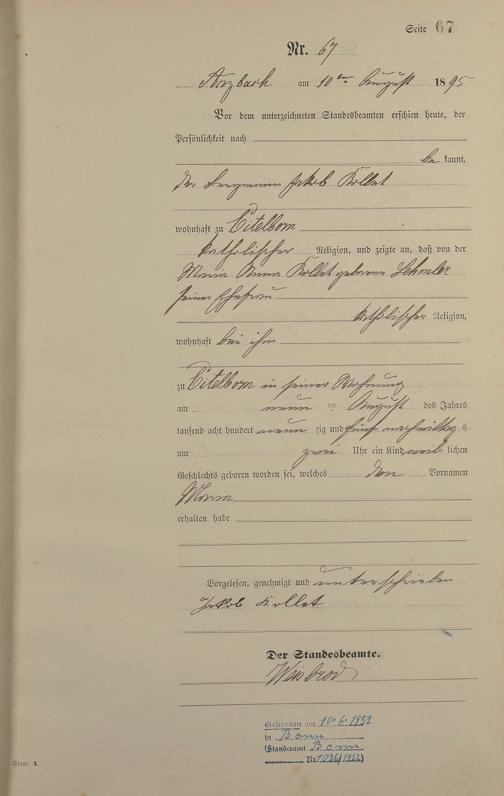 Seite 67
Nr. 67
Arzbach am 10ten August 1895
Vor dem unterzeichneten Standesbeamten erschien heute, der
Persönlichkeit nach
bekannt,
der Bergmann Jakob Kollet
wohnhaft zu Eitelborn
katholischer Religion, und zeigte an, daß von der
Maria Anna Kollet geborene
seiner Ehefrau
katholischer Religion,
wohnhaft bei ihm
zu Eitelborn in seiner Wohnung
am neun ten August des Jahres
tausend acht hundert neunzig und fünf nachmittags
um zwei Uhr ein Kind weiblichen
Geschlechts geboren worden sei, welches den Vornamen
Maria
erhalten habe
Vorgelesen, genehmigt und unterschrieben
Jakob Kollet
Der Standesbeamte.
Weisbrod
Gestorben am 10.6.1952
in Bonn
(Standesamt Bonn
Nr. 1036/1952)
Form. A.